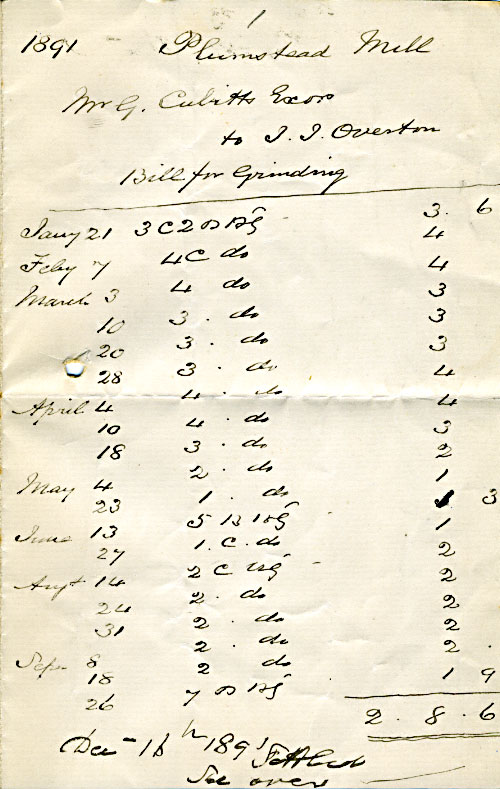 1
1891 Plumstead Mill
Mr G. Cubitts Exors
to J. J. Overton
Bill for Grinding
Jany 21 3 C 2 B Bg 3. 6
Feby 7 4 C do 4
March 3 4 do 4
10 3 . do 3
20 3 . do 3
28 3 . do 3
April 4 4 . do 4
10 4 . do 4
18 3 . do 3
May 4 2 . do 2
23 1 . do 1
June 13 5 B Bg 1 3
27 1 . C . do 1
Augt 14 2 C Bg 2
24 2 . do 2
31 2 . do 2
Sepr 8 2 . do 2 .
18 2 do 2
26 7 B Bg 1 9
2 . 8 . 6
Dec 16th 1891 Settled
See over